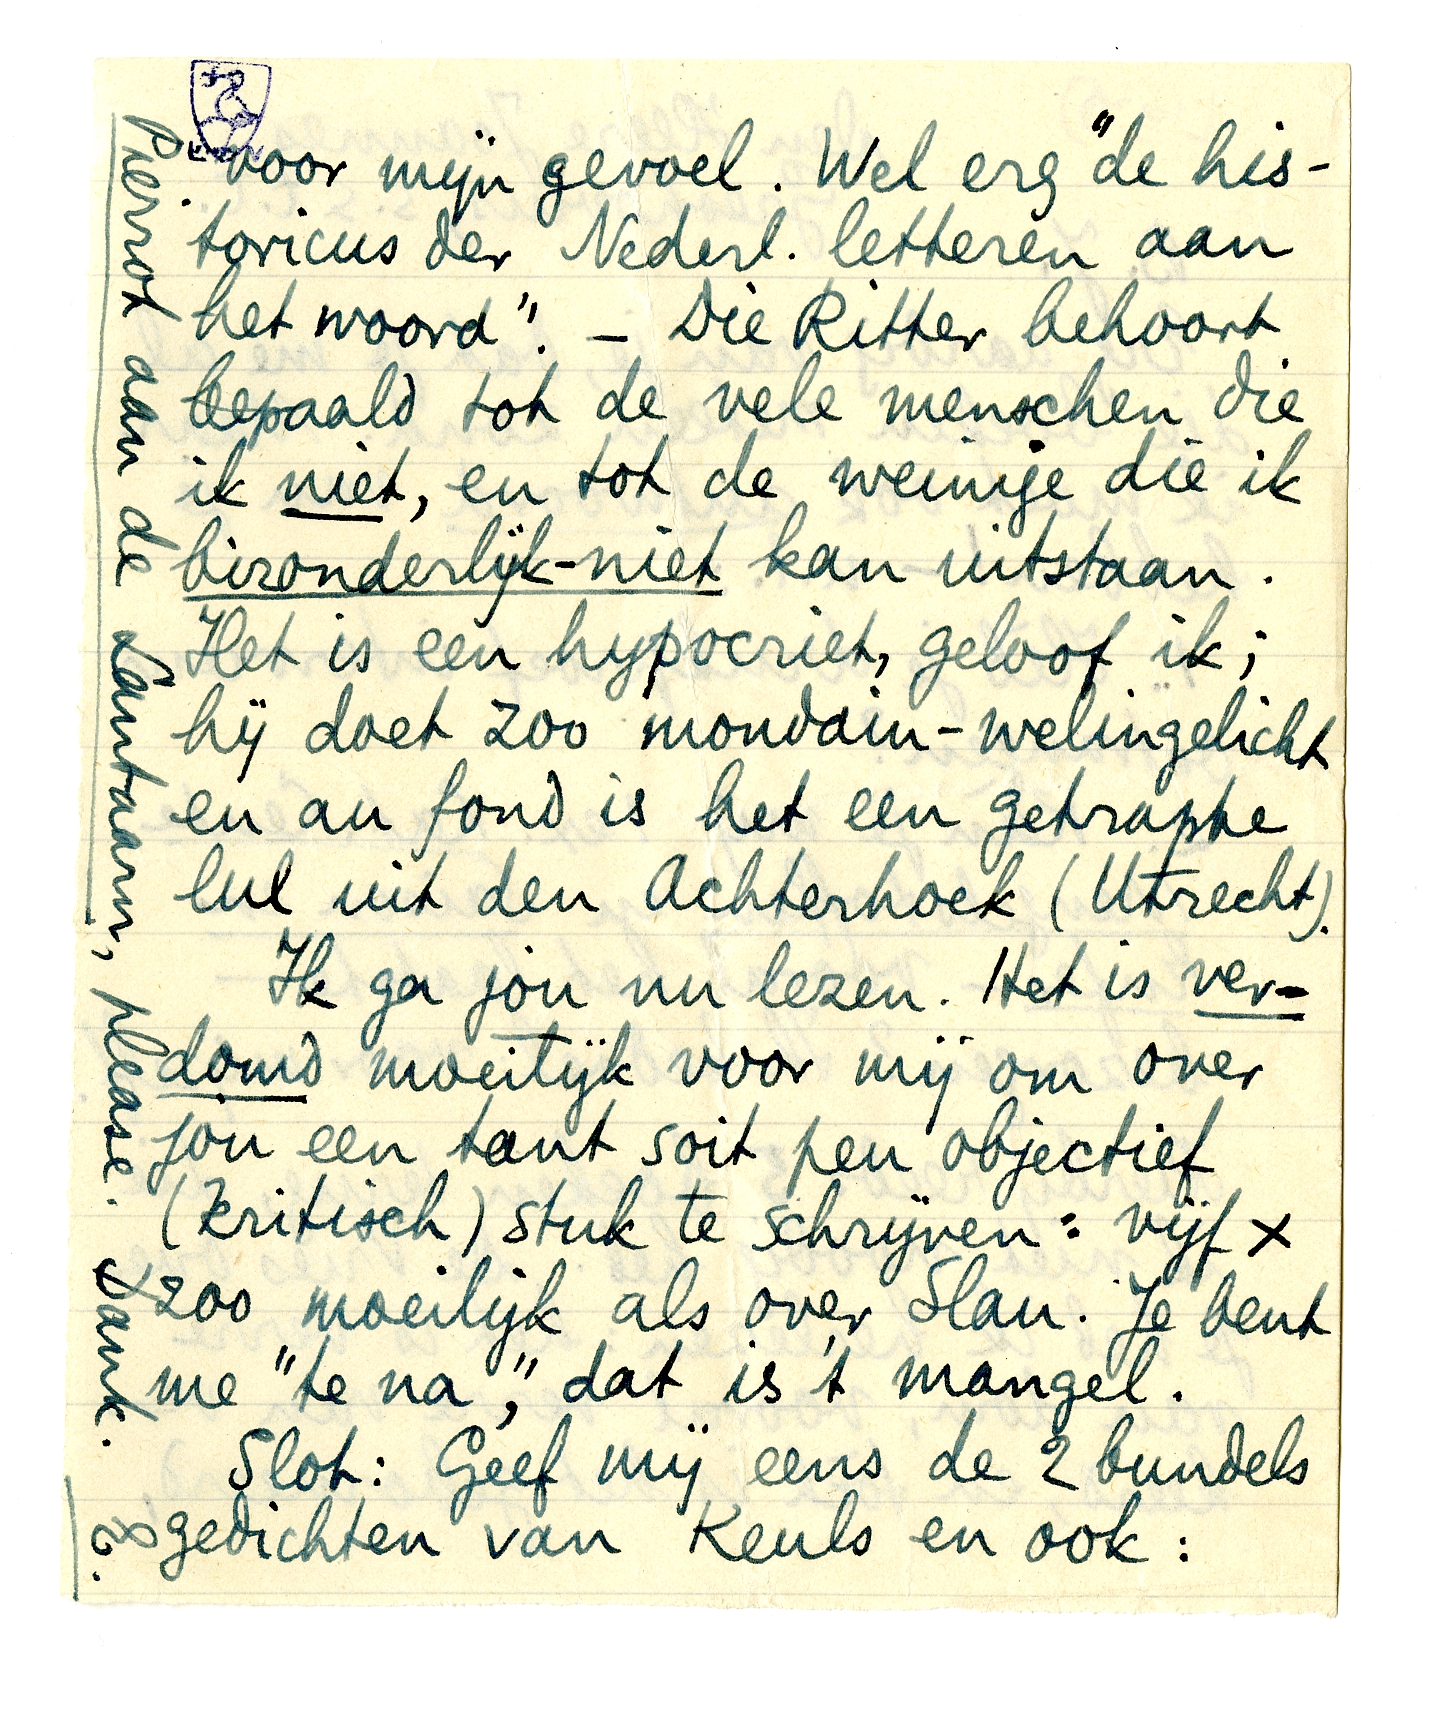 voor mijn gevoel. Wel erg "de his-
toricus der Nederl. letteren aan
het woord". – Die Ritter behoort
bepaald tot de vele menschen die
ik niet, en tot de weinige die ik
bizonderlijk-niet kan uitstaan.
Het is een hypocriet, geloof ik;
hij doet zoo mondain-welingelicht
en au fond is het een getrapte
lul uit den Achterhoek (Utrecht).
Ik ga jou nu lezen. Het is ver-
domd moeilijk voor mij om over
jou een tant soit peu objectief
(kritisch) stuk te schrijven: vijf x
zoo moeilijk als over Slau. Je bent
me "te na", dat is 't mangel.
Slot: Geef mij eens de 2 bundels
gedichten van Keuls en ook:
Pierrot aan de Lantaarn, please. Dank.
E.